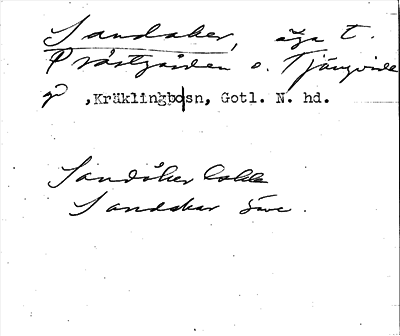 Sandaker, äga t.
Prästgården o. Tjängvide
gd ,Kräklingbosn, Gotl. N. hd.
Sandåker
Sandakar